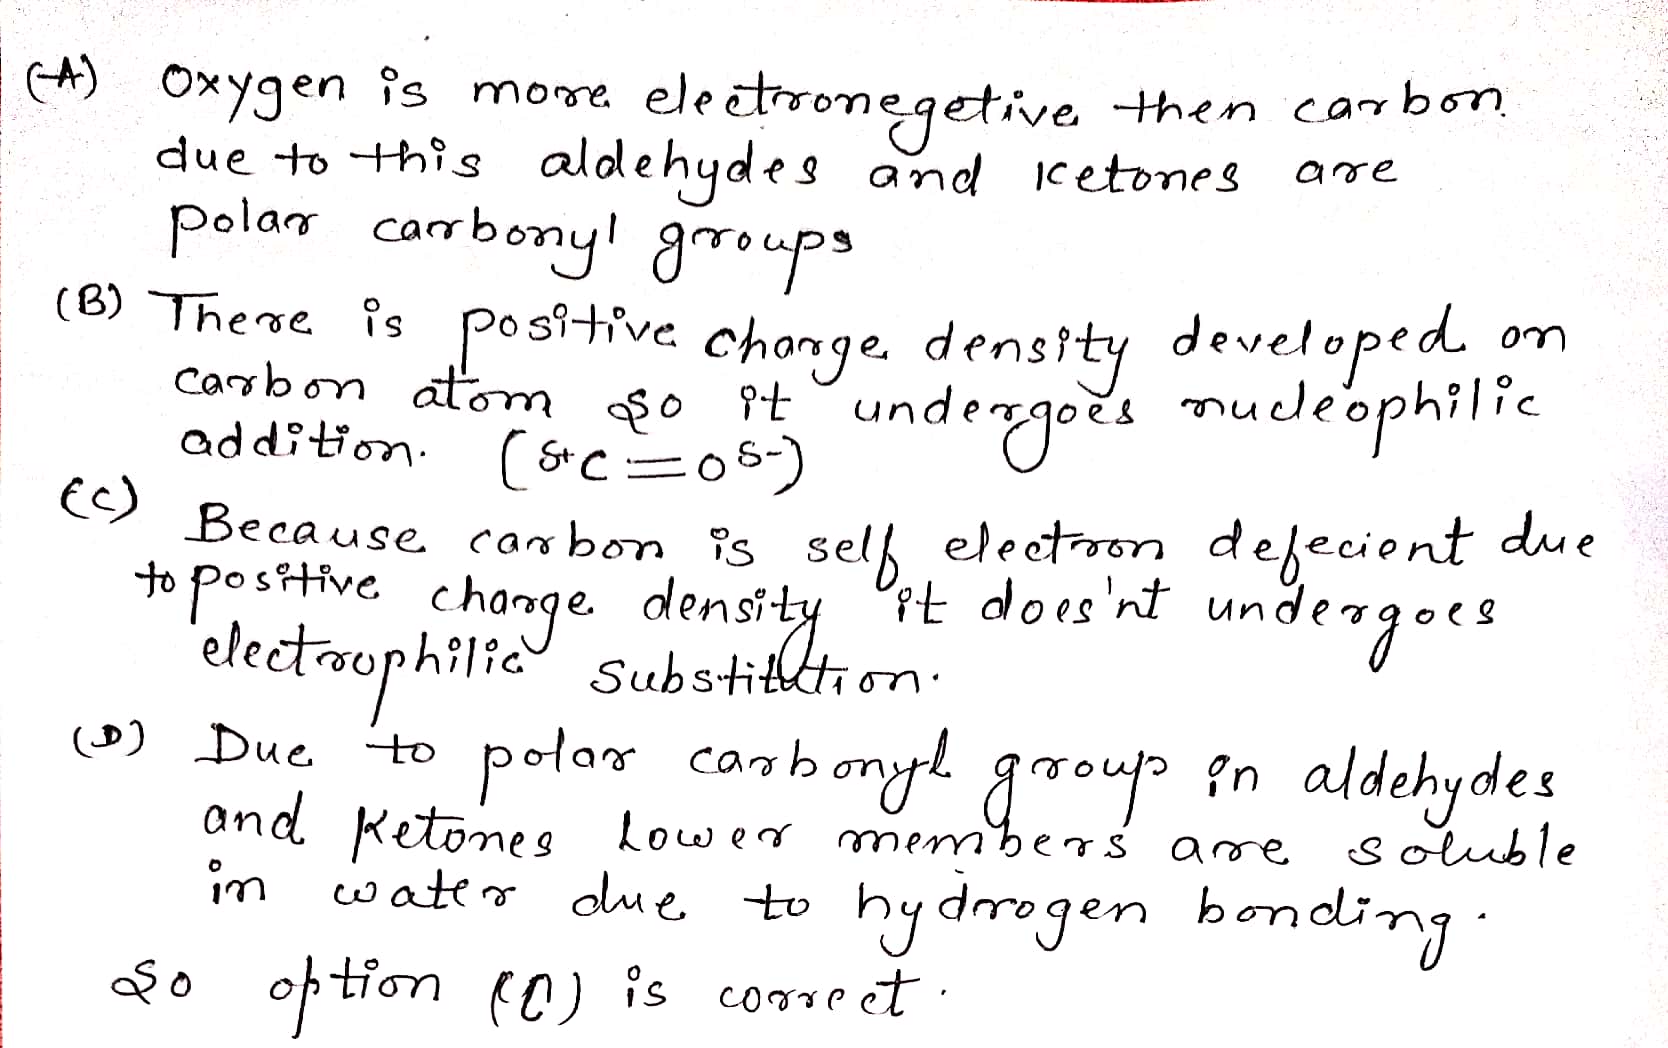 (A) Oxygen is more electronegetive then carbon.
due to this aldehydes and ketones are
polar carbonyl groups
(B) There is positive charge density developed on
carbon atom so it undergoes nucleophilic
addition. (δ+C=Oδ-)
(C) Because carbon is self electron defecient due
to positive charge density it does'nt undergoes
electrophilic substitution.
(D) Due to polar carbonyl group in aldehydes
and Ketones Lower members are soluble
in water due to hydrogen bonding.
So option (C) is correct.